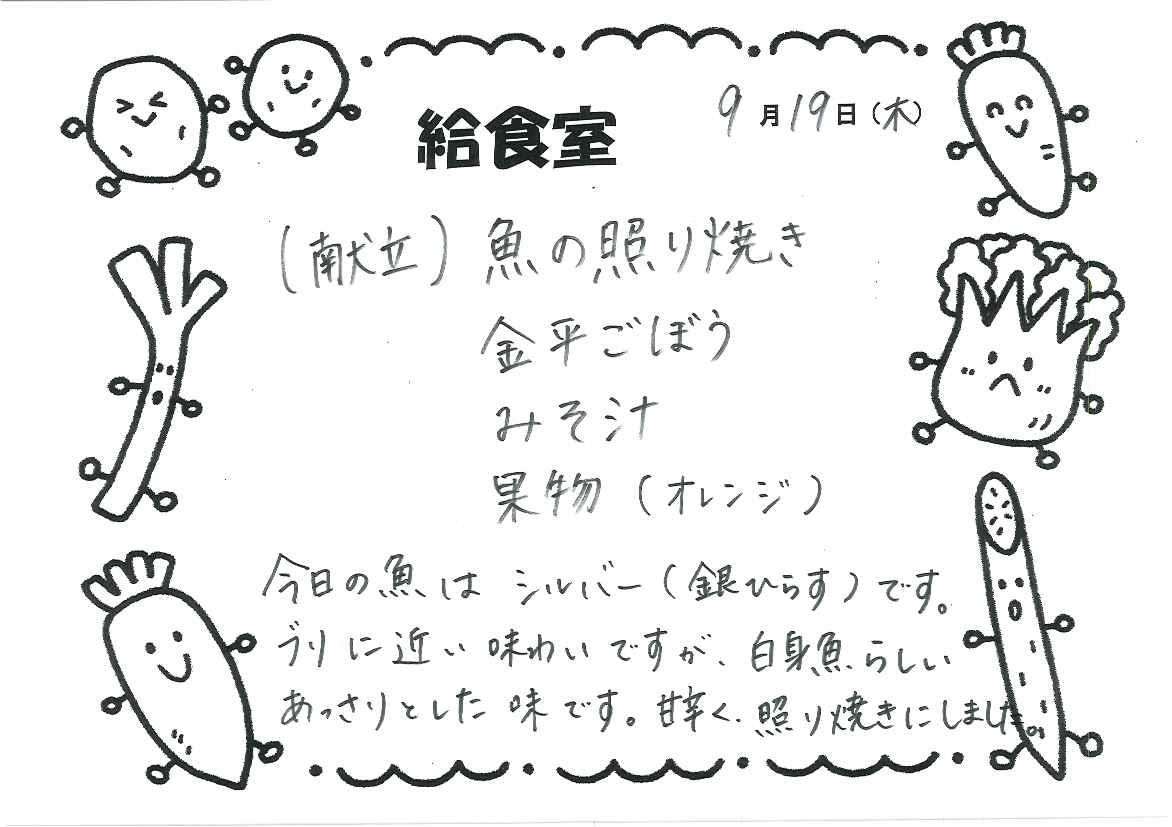 給食室
9月19日(木)
(献立) 魚の照り焼き
金平ごぼう
みそ汁
果物 (オレンジ)
今日の魚は シルバー (銀ひらす) です。
ブリに近い 味わいですが、白身魚らしい
あっさりとした 味です。甘辛く、照り焼きにしました。